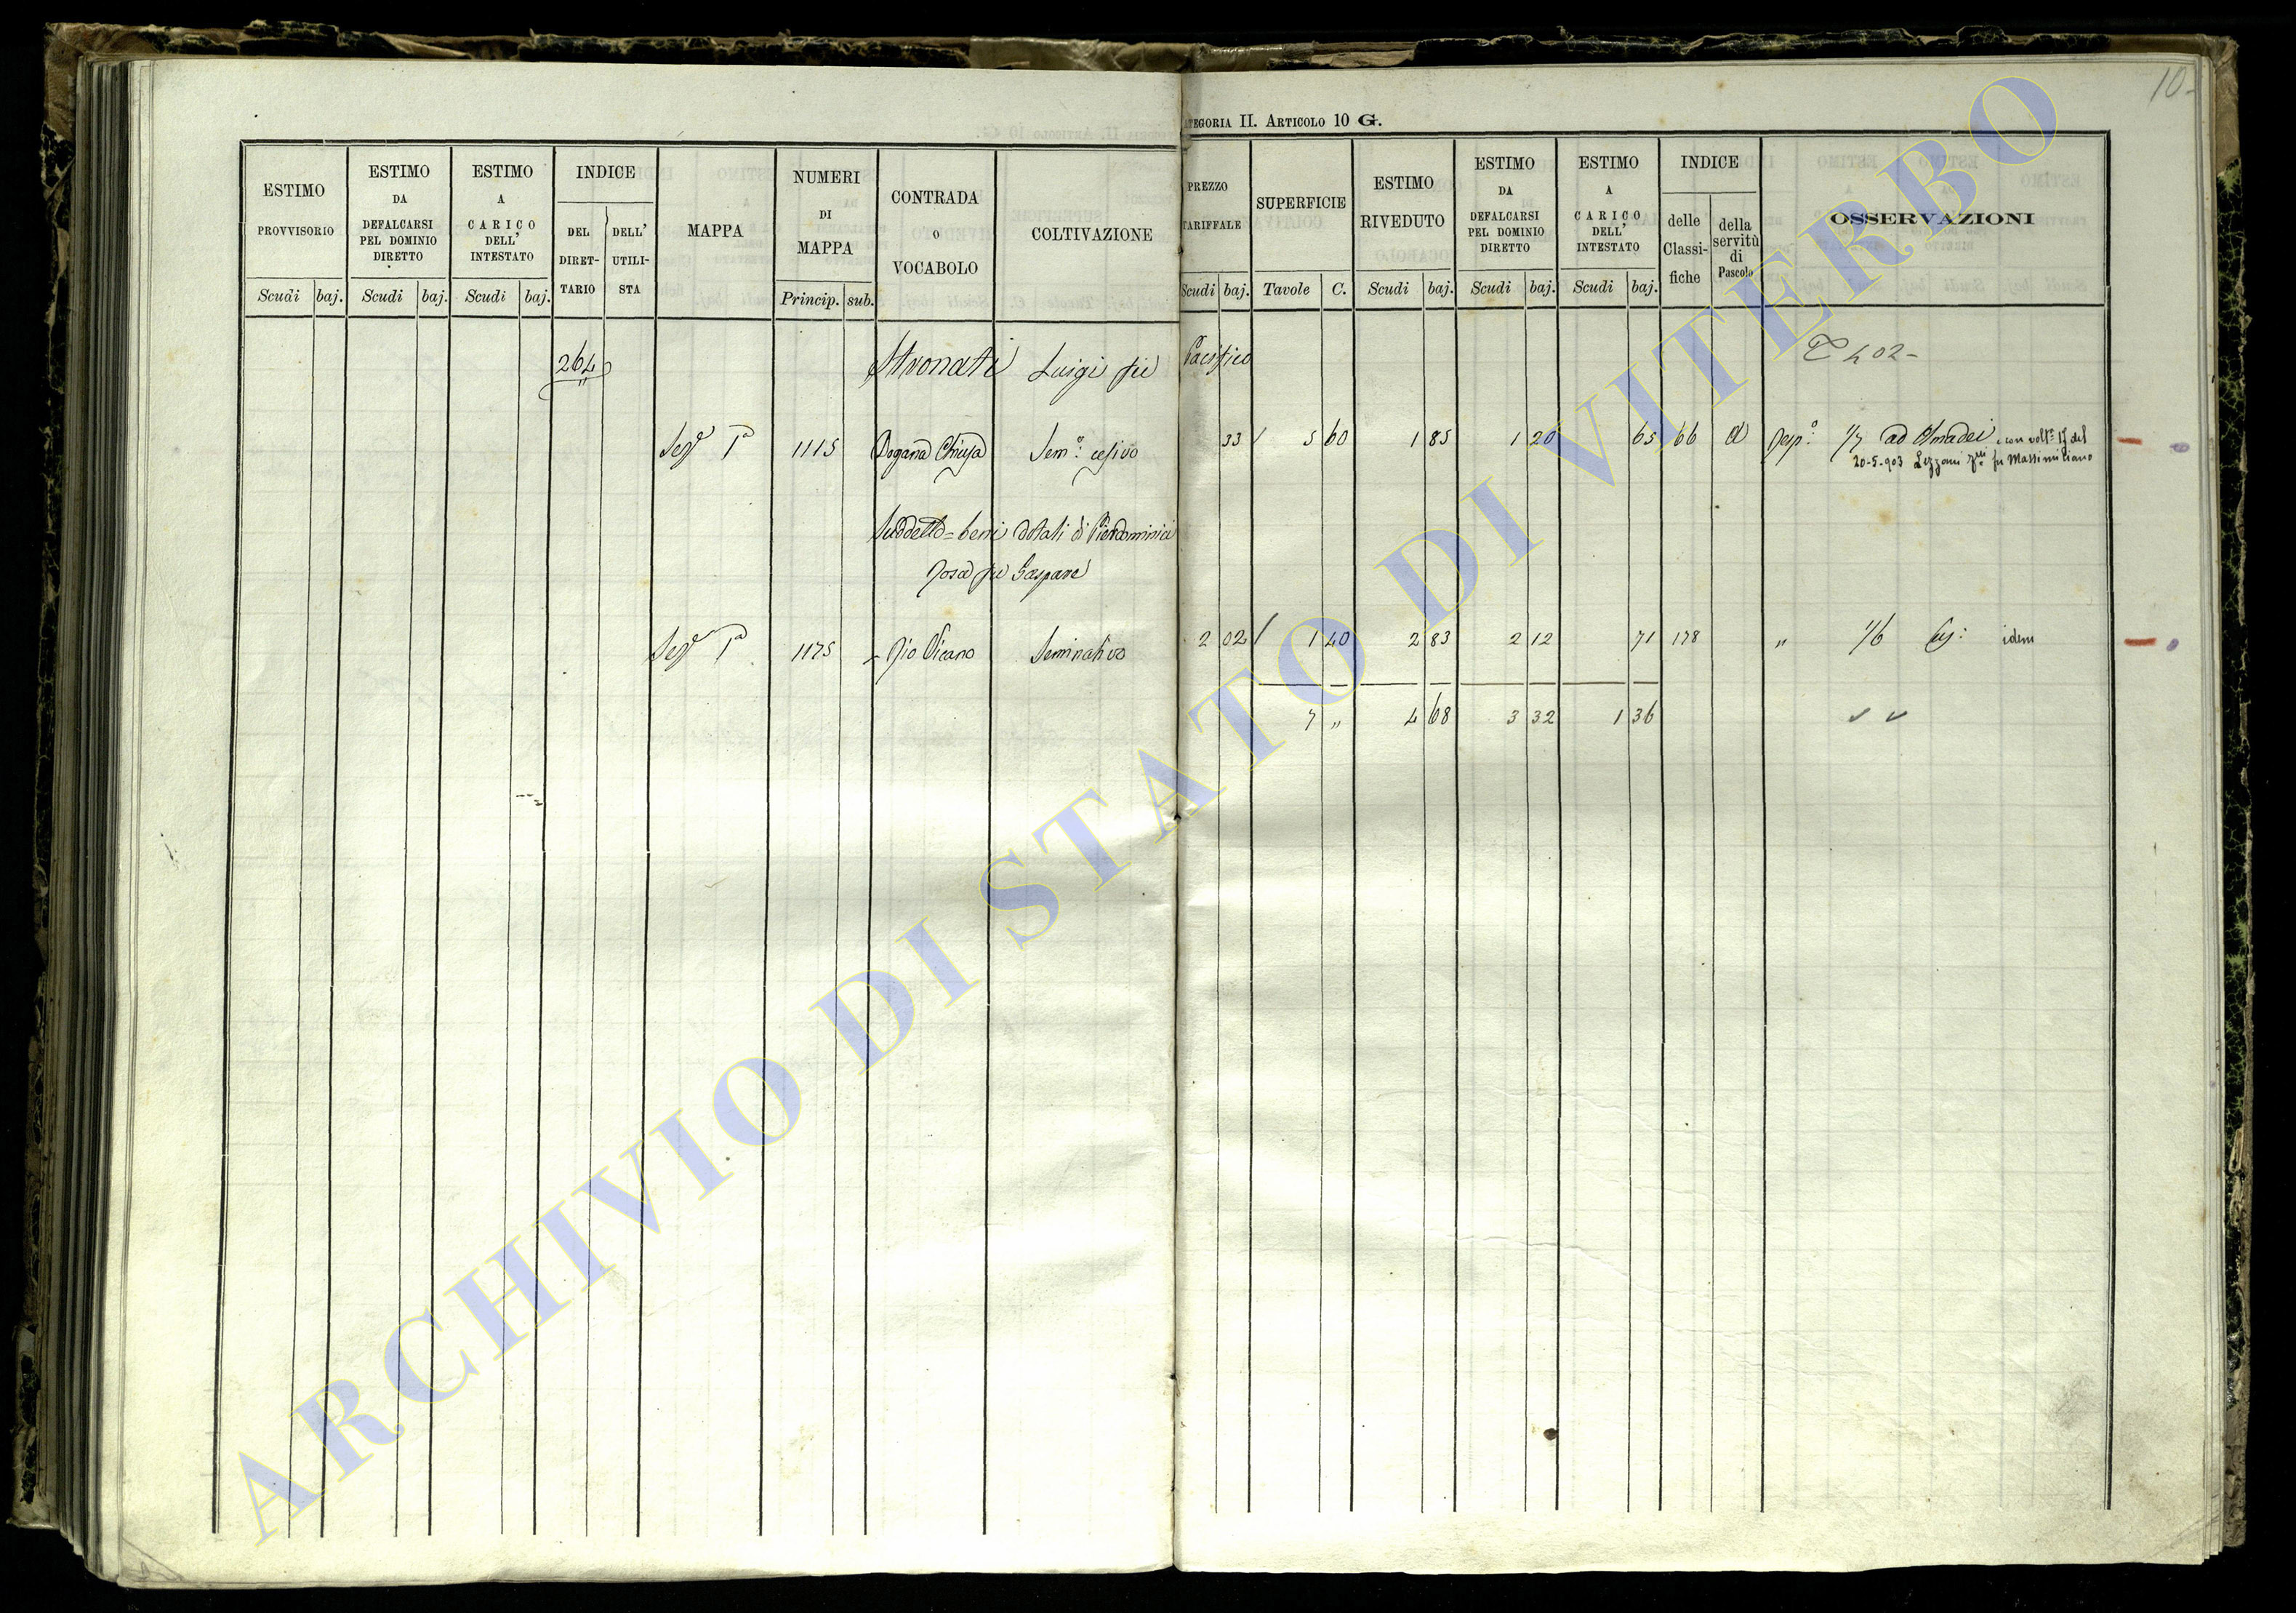 10-
CATEGORIA II. ARTICOLO 10 G.
ESTIMO PROVVISORIO
ESTIMO DA DEFALCARSI PEL DOMINIO DIRETTO
ESTIMO A CARICO DELL' INTESTATO
INDICE
DEL DIRET- TARIO
DELL' UTILI- STA
MAPPA
NUMERI DI MAPPA
CONTRADA O VOCABOLO
COLTIVAZIONE
PREZZO TARIFFALE
SUPERFICIE
ESTIMO RIVEDUTO
ESTIMO DA DEFALCARSI PEL DOMINIO DIRETTO
ESTIMO A CARICO DELL' INTESTATO
INDICE
delle Classi- fiche
della servitù di Pascolo
OSSERVAZIONI
Scudi baj. Scudi baj. Scudi baj. Princip. sub. Scudi baj. Tavole C. Scudi baj. Scudi baj. Scudi baj.
264 Stronati Luigi fu Pacifico 402-
Sez.e 1a 1115 Dogana Chiusa Sem.o cesivo 33 5 60 1 85 1 20 65 66 Risp.o 1/7 ad Amadei e con volt.a 17 del
20-5-903 Lezzani fu Massimiliano
Suddetto = beni dotali di Pierdominici
Rosa fu Gaspare
Sez.e 1a 1175 Rio Vicano Seminativo 2 02 1 40 2 83 2 12 71 178 " 1/6 idem
7 " 4 68 3 32 1 36
ARCHIVIO DI STATO DI VITERBO